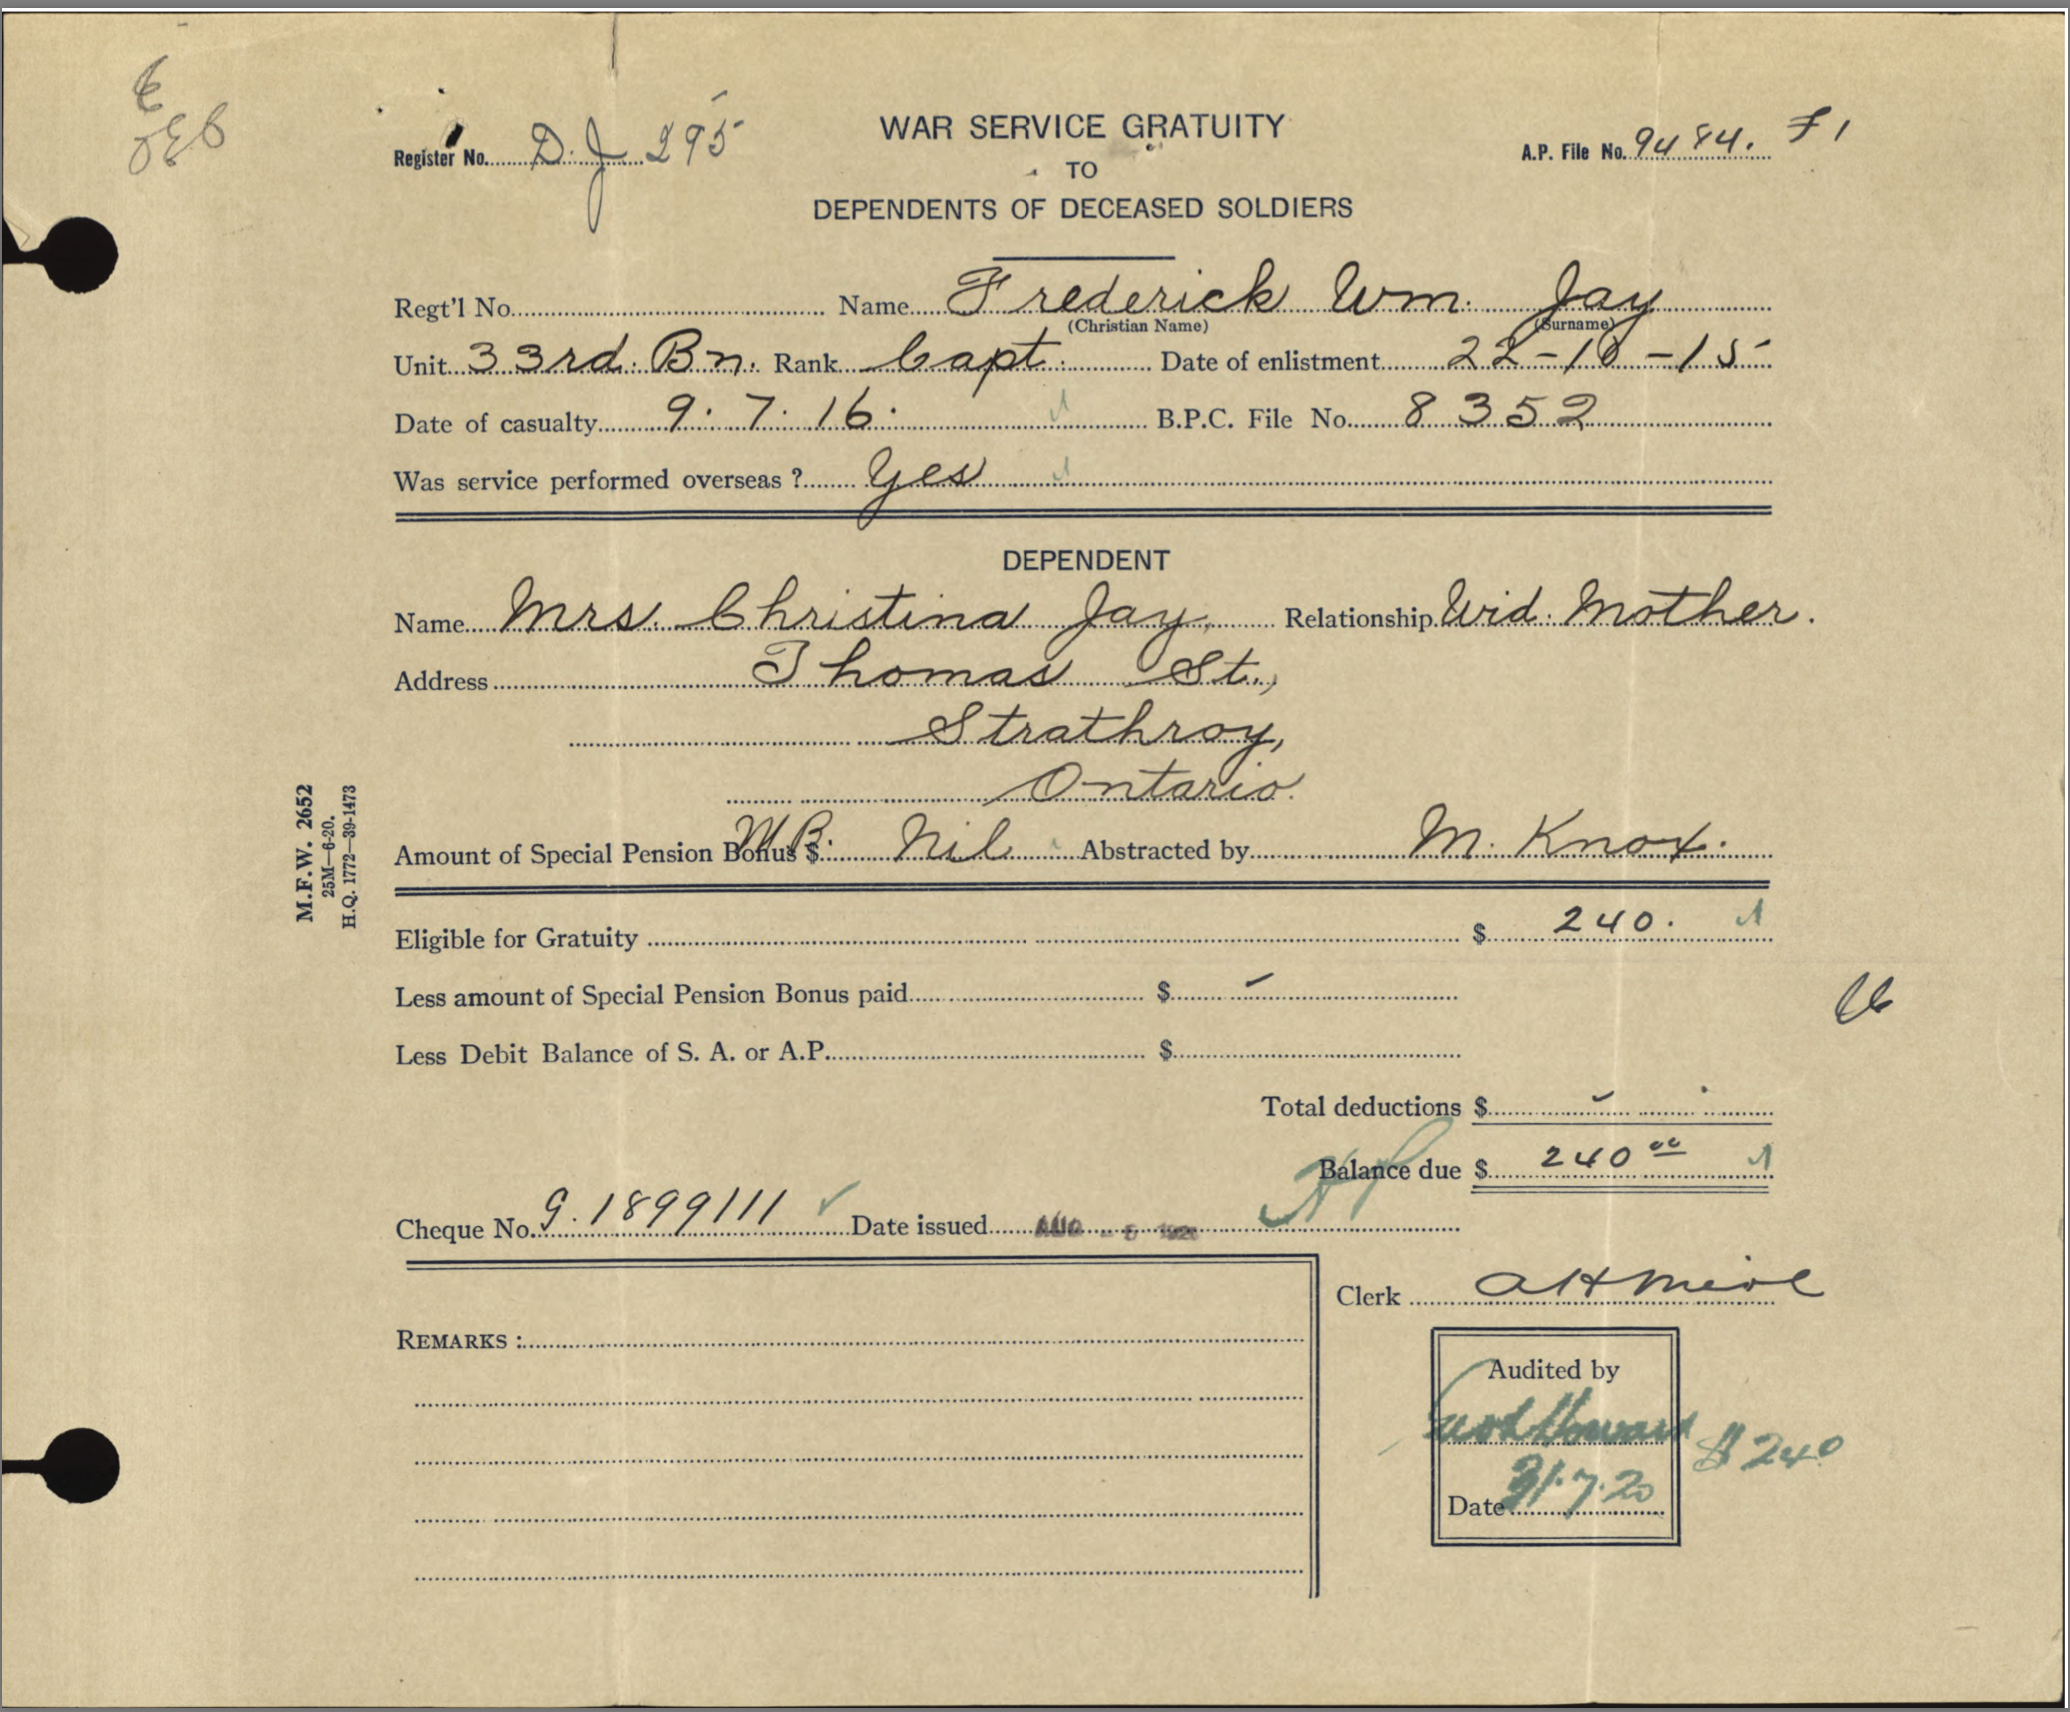 Register No. D. J 295
WAR SERVICE GRATUITY
A.P. File No. 9484. F1
TO
DEPENDENTS OF DECEASED SOLDIERS
Regt'l No. Name Frederick Wm. Jay
(Christian Name) (Surname)
Unit 33rd. Bn. Rank Capt. Date of enlistment 22-10-15
Date of casualty 9. 7. 16. B.P.C. File No. 8352
Was service performed overseas ? Yes
DEPENDENT
Name Mrs. Christina Jay. Relationship Wid. Mother.
Address Thomas St.,
Strathroy,
Ontario.
Amount of Special Pension Bonus $ Nil Abstracted by M. Knox.
M.F.W. 2652
25M—6-20.
H.Q. 1772—39-1473
Eligible for Gratuity $ 240.
Less amount of Special Pension Bonus paid $ -
Less Debit Balance of S. A. or A.P. $
Total deductions $ -
Balance due $ 240 00
Cheque No. G. 1899111 Date issued AUG - 5 1920
Clerk
REMARKS :
Audited by
$240
Date 31.7.20